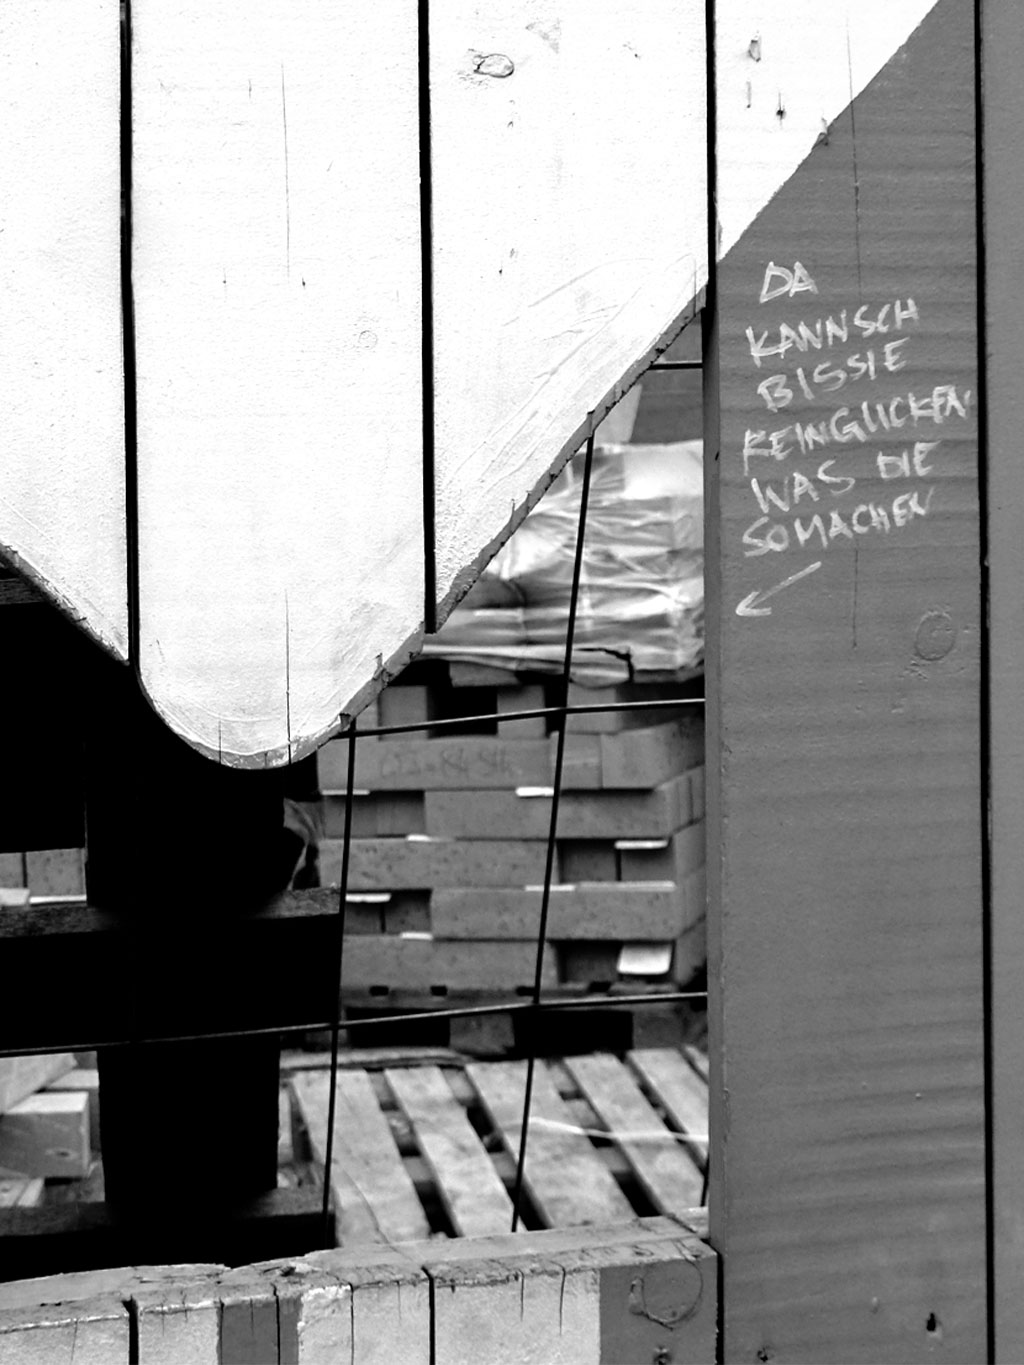 DA
KANNSCH
BISSIE
REINGUCKEN
WAS DIE
SO MACHEN